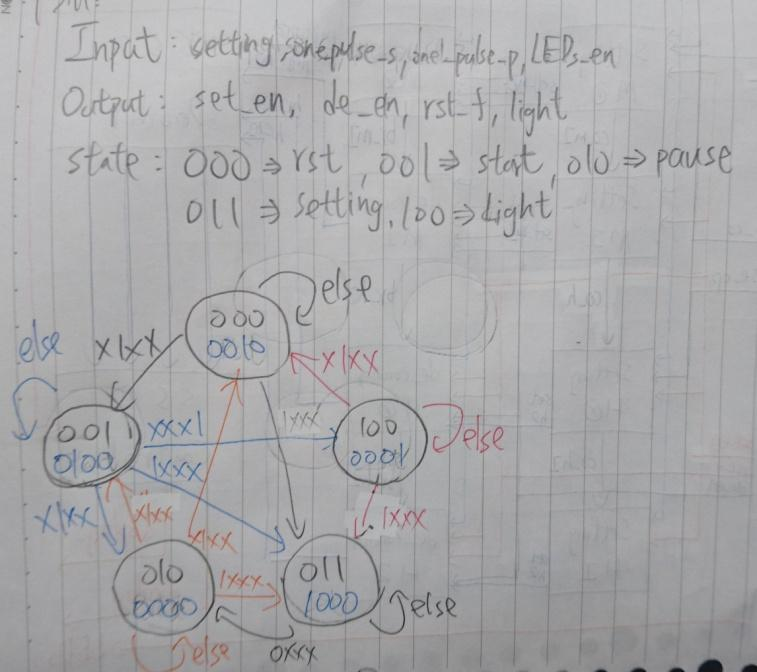 Input: setting, onepulse_s, one_pulse_p, LEDs_en
Output: set_en, de_en, rst_f, light
state: 000 ⇒ rst, 001 ⇒ start, 010 ⇒ pause
011 ⇒ setting, 100 ⇒ Light
else
000
0010
else
X1XX
X1XX
001
0100
XXX1
1XXX
1XXX
100
0001
else
X1XX
X1XX
X1XX
1XXX
010
0000
1XXX
011
1000
else
else
0XXX